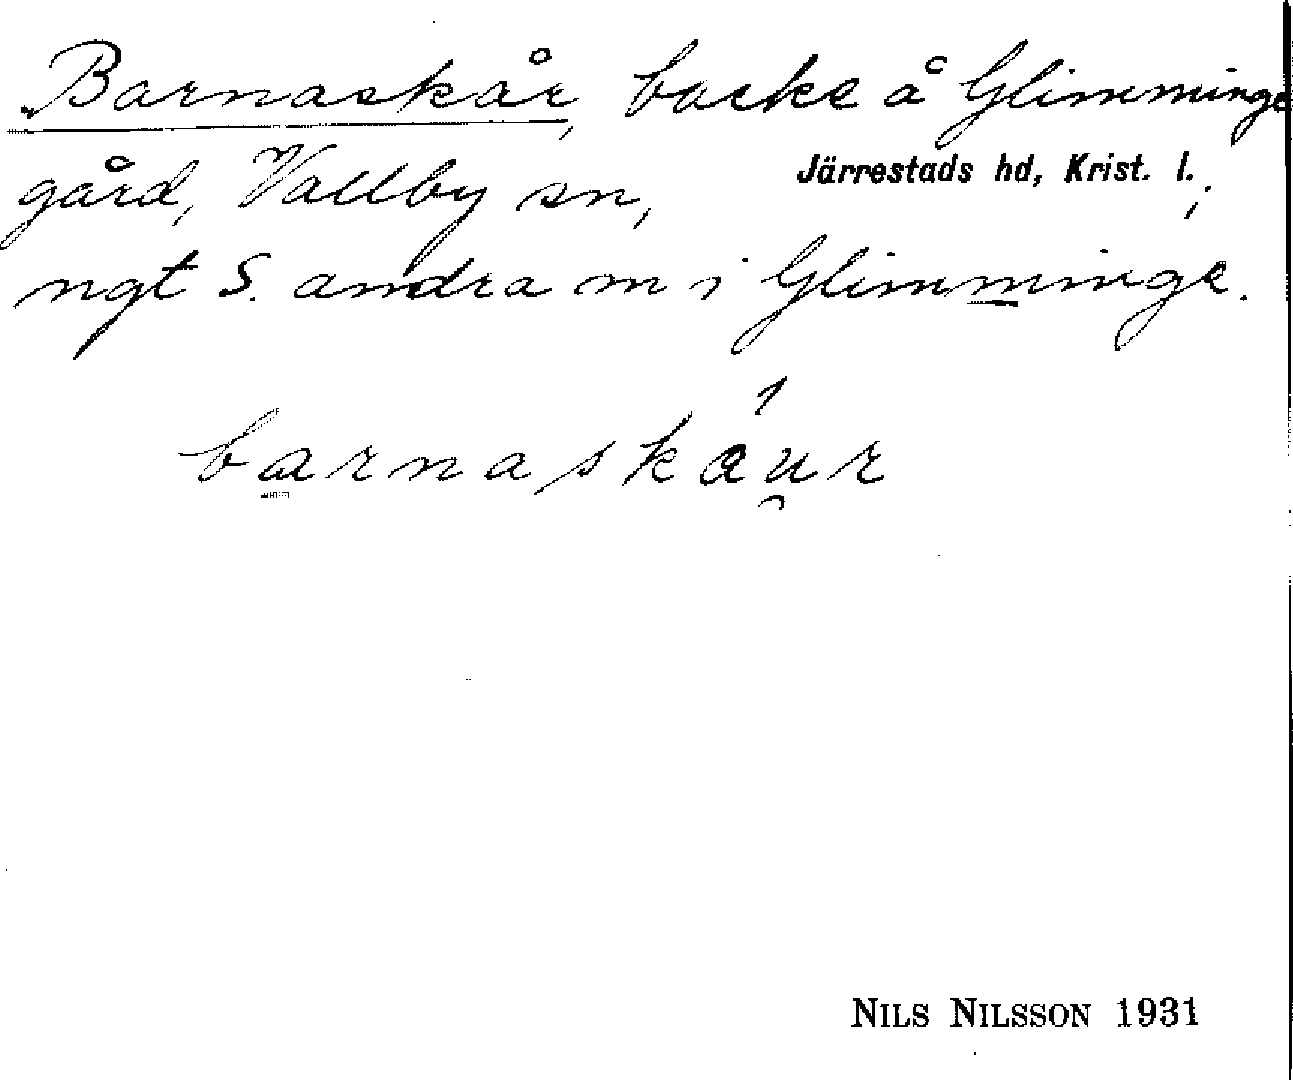 Barnaskår, backe å Glimminge
gård, Vallby sn, Järrestads hd, Krist. l.;
ngt S. andra m i Glimminge.
barnaskáu̯r
NILS NILSSON 1931